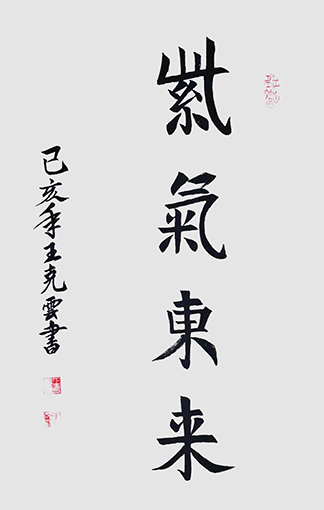 紫氣東来
己亥年王克雲書